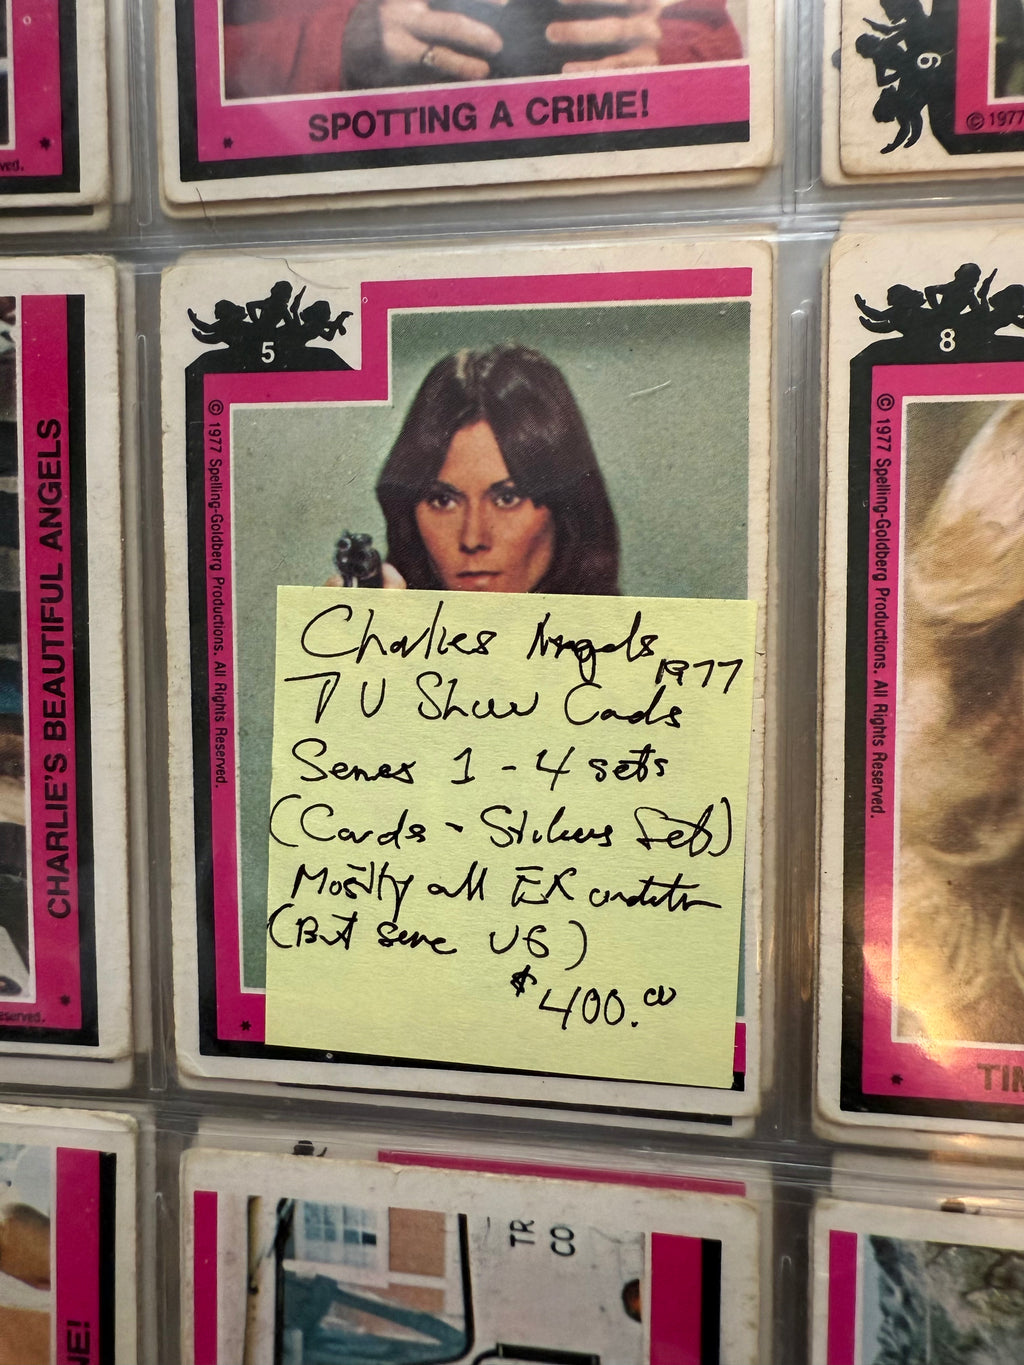 SPOTTING A CRIME!
*
*
ved.
9
© 1977
5
8
© 1977 Spelling-Goldberg Productions. All Rights Reserved.
© 1977 Spelling-Goldberg Productions. All Rights Reserved.
CHARLIE'S BEAUTIFUL ANGELS
Charlies Angels
1977
TV Show Cards
Series 1 - 4 sets
(Cards - Stickers Set)
Mostly all EX condition
(But some VG)
$400.00
*
*
*
eserved.
TIM
TR
CO
NE!